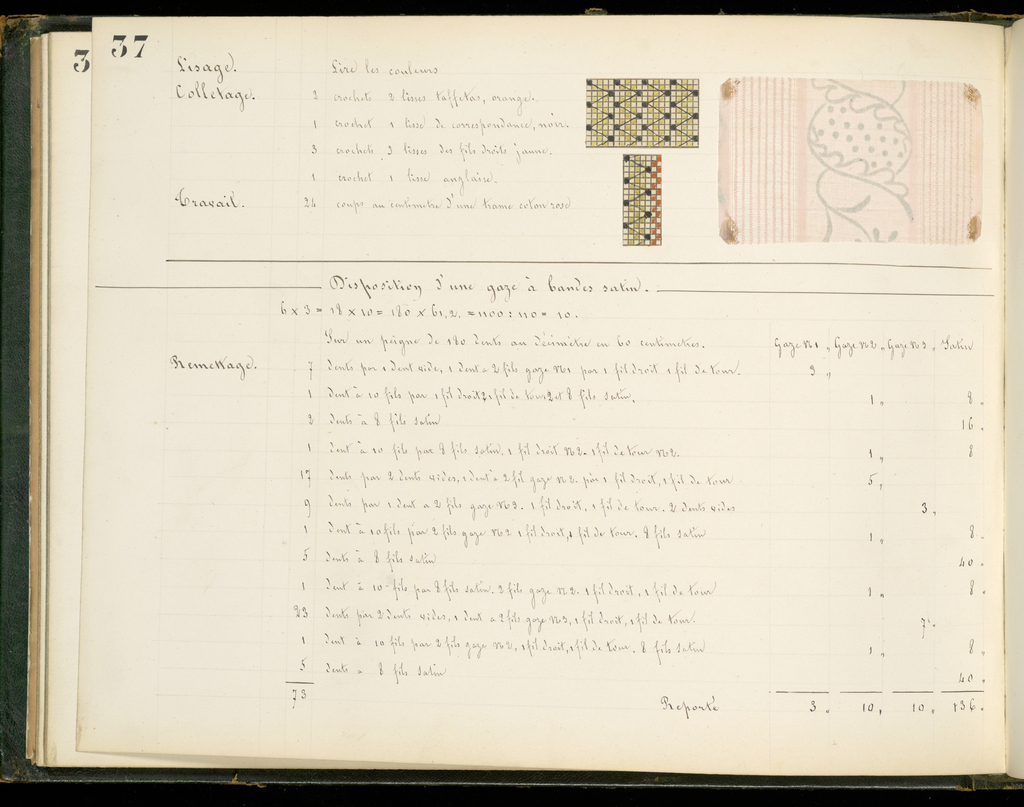 37
3
Lisage. Lire les couleurs
Colletage. 2 crochets 2 lisses taffetas, orange.
1 crochet 1 lisse de correspondance, noir.
3 crochets 3 lisses des fils droits jaune.
1 crochet 1 lisse anglaise.
Travail. 24 coups au centimètre d'une trame coton rose
Disposition d'une gaze à bandes satin.
6 x 3 = 18 x 10 = 180 x 61,2, = 1100 : 110 = 10.
Sur un peigne de 180 dents au décimètre en 60 centimètres. Gaze N1 " Gaze N2 " Gaze N3 " Satin
Remettage. 7 dents par 1 dent vide, 1 dent à 2 fils gaze N1 par 1 fil droit 1 fil de tour. 3 "
1 dent à 10 fils par 1 fil droit 1 fil de tour et 8 fils satin. 1 " 8 "
2 dents à 8 fils satin 16 "
1 dent à 10 fils par 8 fils satin. 1 fil droit N2 - 1 fil de tour N2. 1 " 8
17 dents par 2 dents vides, 1 dent à 2 fil gaze N2. par 1 fil droit, 1 fil de tour 5 "
9 dents par 1 dent à 2 fils gaze N3. 1 fil droit, 1 fil de tour. 2 dents vides 3 "
1 dent à 10 fils par 2 fils gaze N2 1 fil droit, 1 fil de tour. 8 fils satin 1 " 8 "
5 dents à 8 fils satin 40 "
1 dent à 10 fils par 8 fils satin. 2 fils gaze N2. 1 fil droit, 1 fil de tour 1 " 8 "
23 dents par 2 dents vides, 1 dent à 2 fils gaze N3, 1 fil droit, 1 fil de tour. 7 "
1 dent à 10 fils par 2 fils gaze N2, 1 fil droit, 1 fil de tour. 8 fils satin 1 " 8 "
5 dents à 8 fils satin 40 "
73 Reporté 3 " 10 " 10 " 136 "